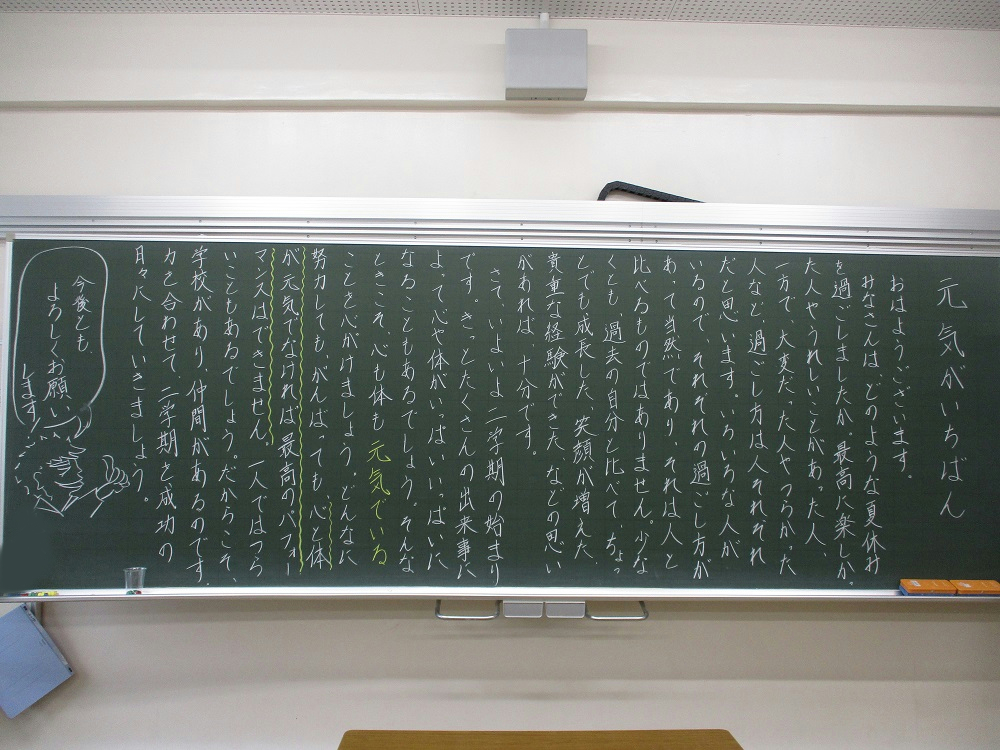 元気がいちばん
おはようございます。
みなさんは、どのような夏休み
を過ごしましたか。最高に楽しか
た人やうれしいことがあった人、
一方で、大変だった人やつらかった
人など、過ごし方は人それぞれ
だと思います。いろいろな人が
いるので、それぞれの過ごし方が
あって当然であり、それは人と
比べるものではありません。少な
くとも、過去の自分と比べて、ちょっ
とでも成長した、笑顔が増えた、
貴重な経験ができた、などの思い
があれば、十分です。
さて、いよいよ二学期の始まり
です。きっとたくさんの出来事に
よって心や体がいっぱいいっぱいに
なることもあるでしょう。そんな
ときこそ、心も体も元気でいる
ことを心がけましょう。どんなに
努力してもがんばっても、心と体
が元気でなければ最高のパフォー
マンスはできません。一人ではつら
いこともあるでしょう。だからこそ、
学校があり、仲間があるのです。
力を合わせて、二学期を成功の
日々にしていきましょう。
今後とも、
よろしくお願い
します!